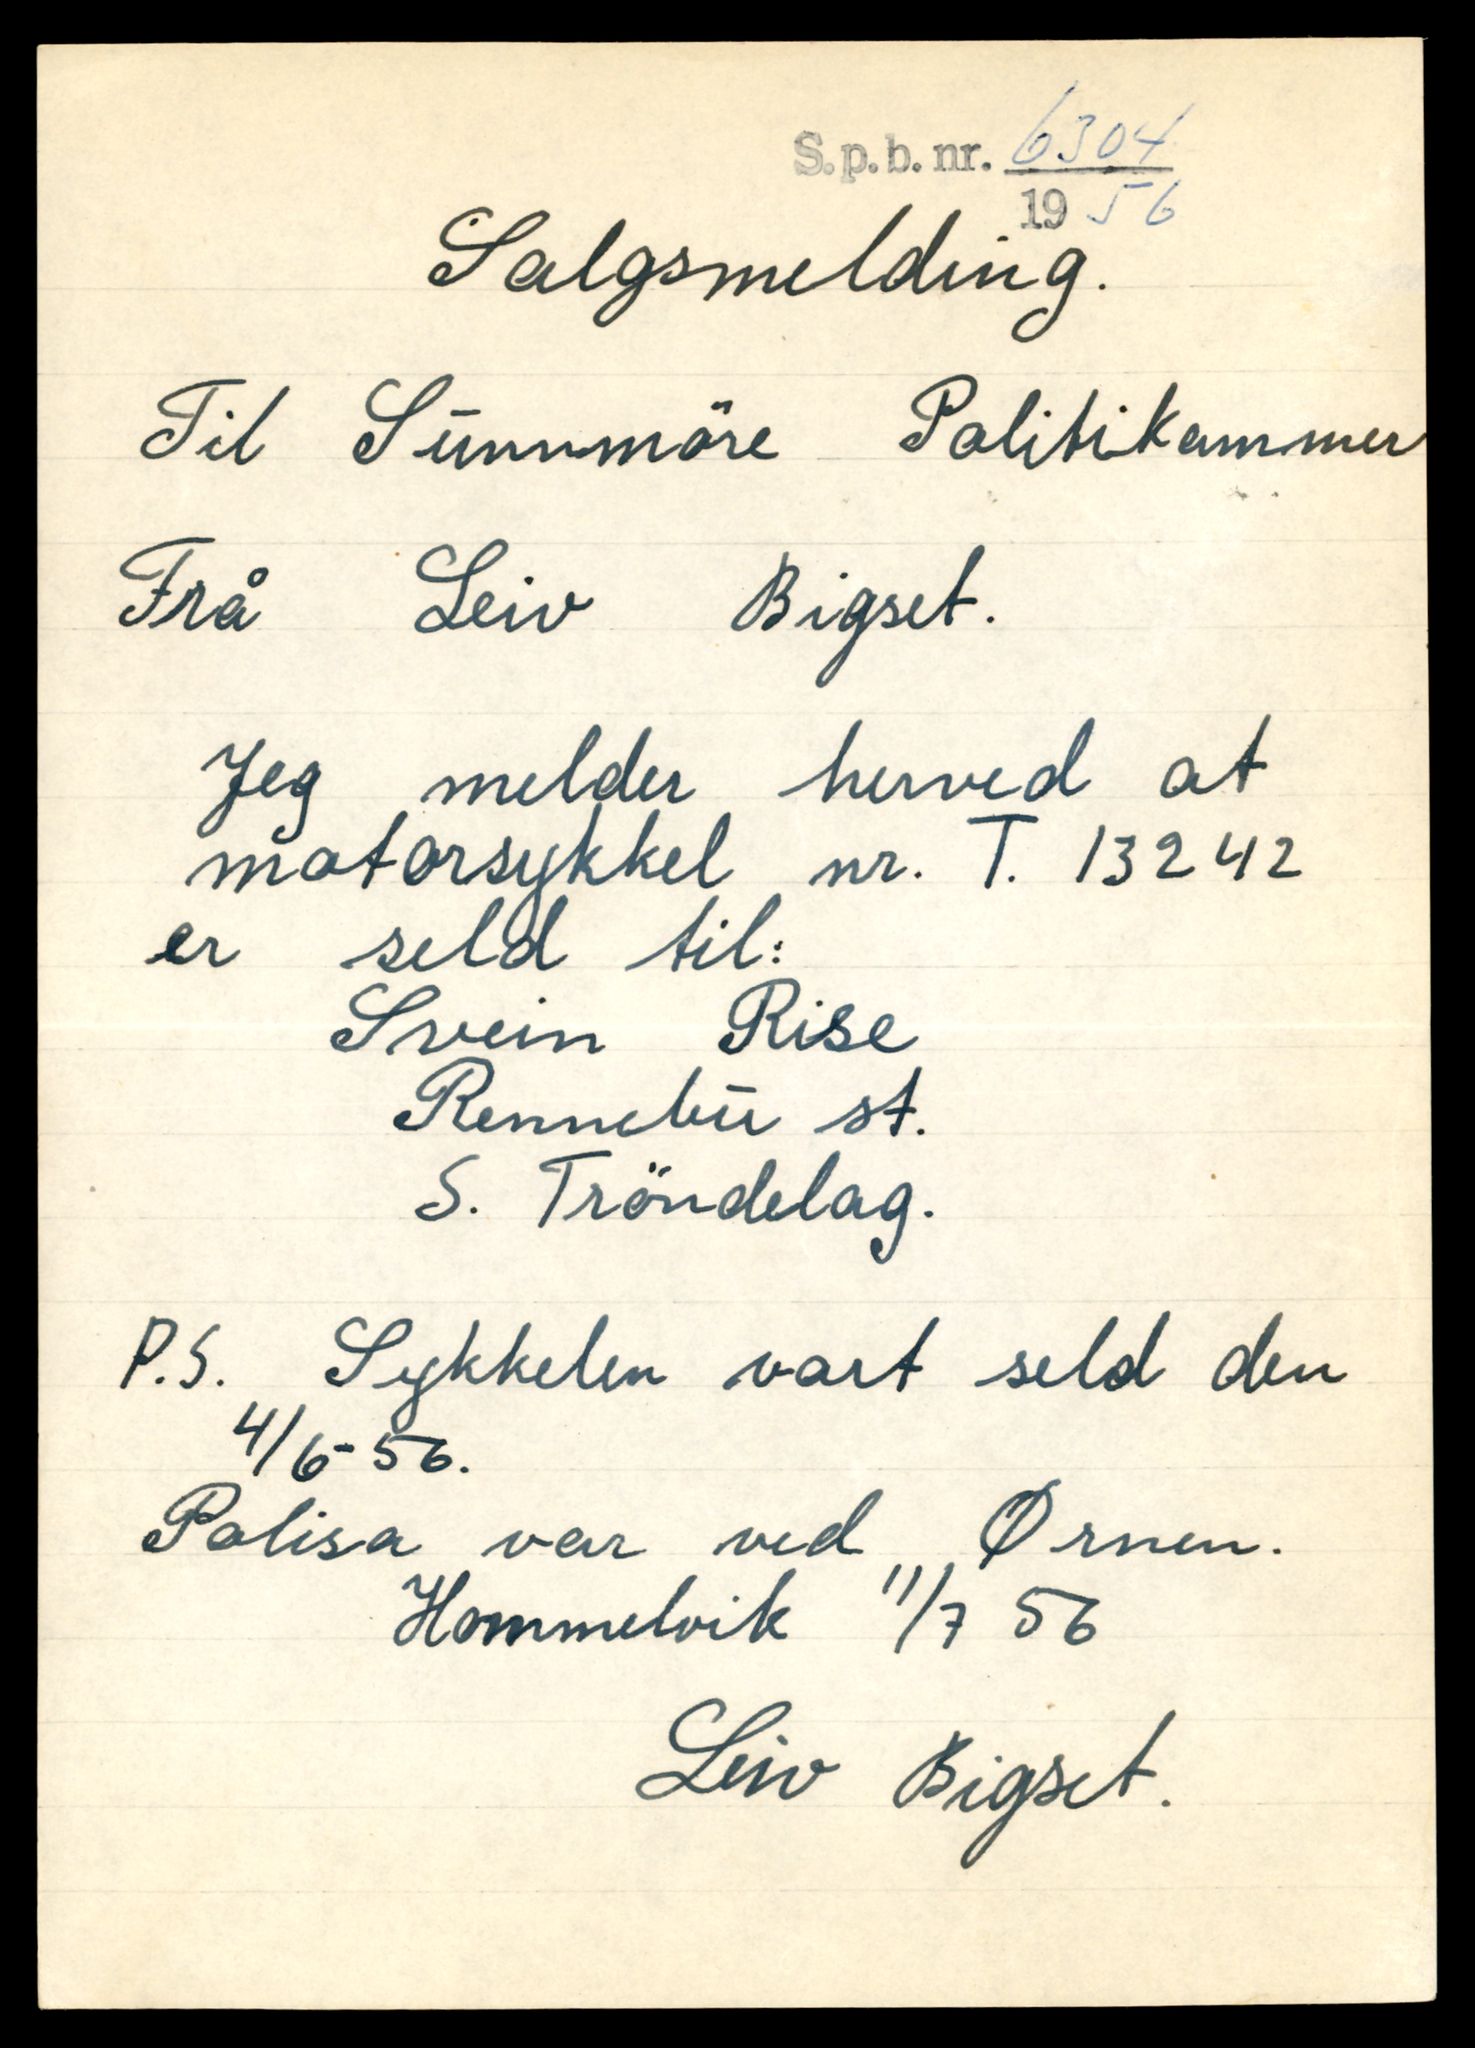 S.p.b. nr. 6304
19 56
Salgsmelding.
Til Sunnmöre Politikammer
Frå Leiv Bigset.
Jeg melder herved at
motorsykkel nr. T. 13242
er seld til:
Svein Rise
Rennebu st.
S. Tröndelag.
P.S. Sykkelen vart seld den
4/6-56.
Polisa var ved Ørnen.
Hommelvik 11/7 56
Leiv Bigset.